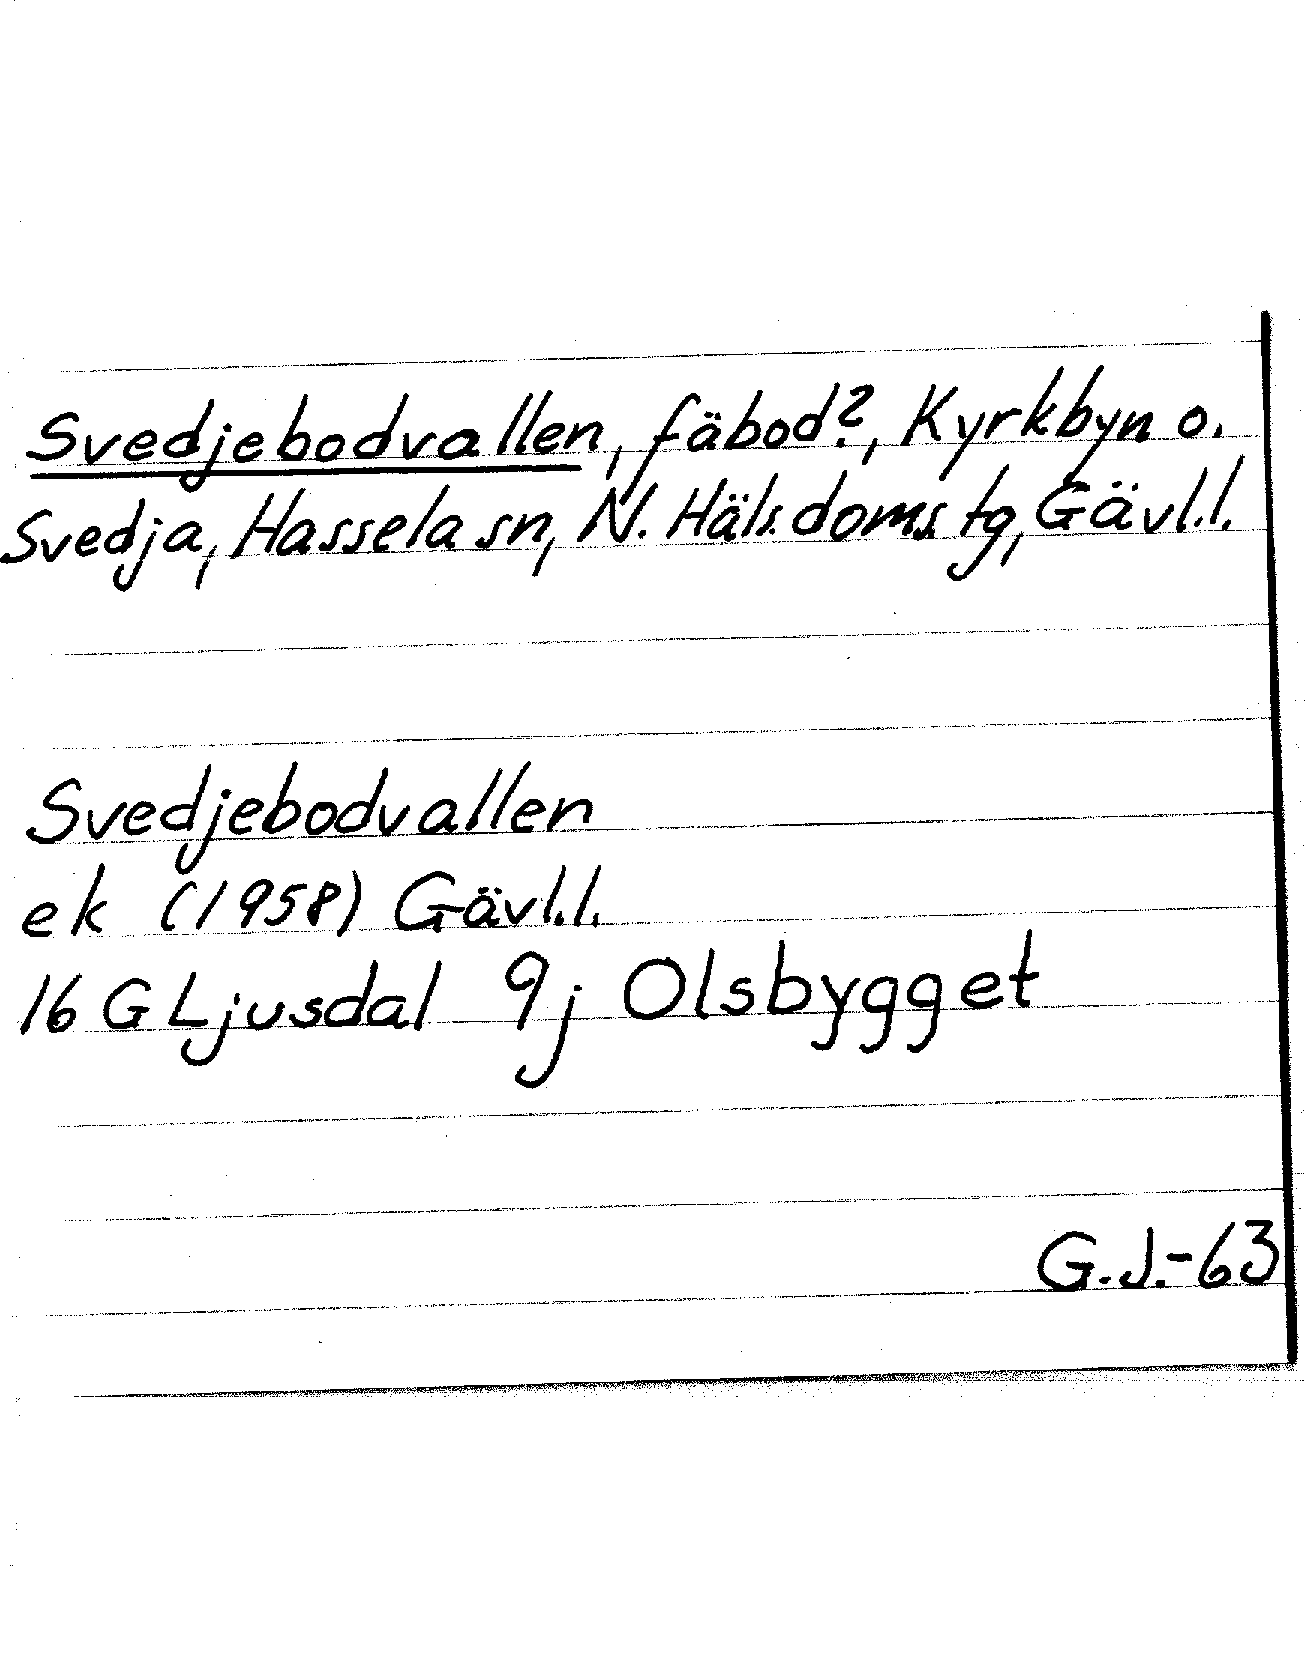 Svedjebodvallen, fäbod?, Kyrkbyn o.
Svedja, Hassela sn, N. Häls. doms. tg, Gävl.l.
Svedjebodvallen
ek (1958) Gävl.l.
16 G Ljusdal 9j Olsbygget
G.J.-63